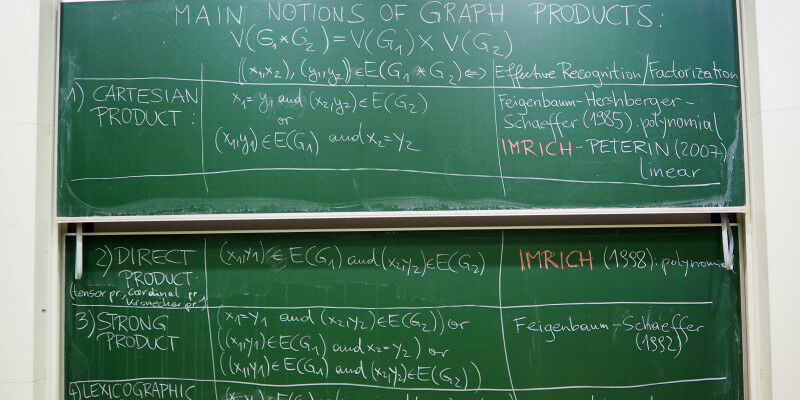 MAIN NOTIONS OF GRAPH PRODUCTS:
V(G₁*G₂) = V(G₁) × V(G₂)
((x₁,x₂), (y₁,y₂)) ∈ E(G₁ * G₂) ⇔ Effective Recognition/Factorization
1) CARTESIAN PRODUCT:
x₁ = y₁ and (x₂,y₂) ∈ E(G₂)
or
(x₁,y₁) ∈ E(G₁) and x₂ = y₂
Feigenbaum-Hershberger-
Schaeffer (1985). polynomial
IMRICH-PETERIN (2007)
linear
2) DIRECT PRODUCT.
(tensor pr., cardinal pr.,
Kronecker pr.)
(x₁,y₁) ∈ E(G₁) and (x₂,y₂) ∈ E(G₂)
IMRICH (1998). polynomial
3) STRONG PRODUCT
(x₁=y₁ and (x₂,y₂) ∈ E(G₂)) or
((x₁,y₁) ∈ E(G₁) and x₂=y₂) or
((x₁,y₁) ∈ E(G₁) and (x₂,y₂) ∈ E(G₂))
Feigenbaum-Schaeffer
(1992)
4) LEXICOGRAPHIC